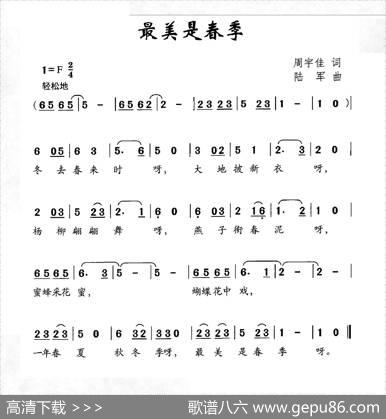 最美是春季
1=F 2/4
周宇佳 词
轻松地
陆 军 曲
(65 65 | 5 - | 65 62 | 2 - | 23 23 | 5 23 | 1 - | 1 0)
6 05 | 6 3 | 5· 3 | 5 0 | 2 03 | 5 1 | 2· 3 | 2 0
冬 去 春 来 时 呀， 大 地 披 新 衣 呀，
2 03 | 5 23 | 2· 1 | 6 0 | 6 02 | 2 16 | 1· 2 | 1 0
杨 柳 翩 翩 舞 呀， 燕 子 衔 春 泥 呀，
65 65 | 6· 3 | 5 - | 5 - | 65 65 | 6· 1 | 2 - | 2 -
蜜蜂采花 蜜， 蝴蝶花中 戏，
23 23 | 5 0 | 6 32 | 3 30 | 23 23 | 5 23 | 1 - | 1 0 ‖
一年春 夏 秋 冬 季呀， 最 美 是 春 季 呀。
高清下载 >>>
歌谱八六 www.gepu86.com